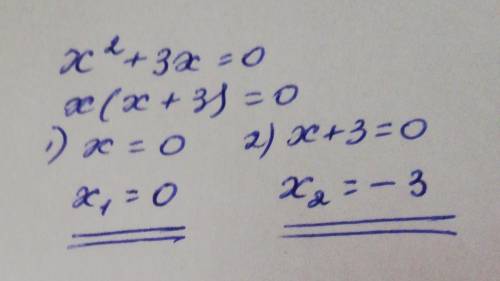 x² + 3x = 0
x(x + 3) = 0
1) x = 0 2) x + 3 = 0
x₁ = 0 x₂ = - 3